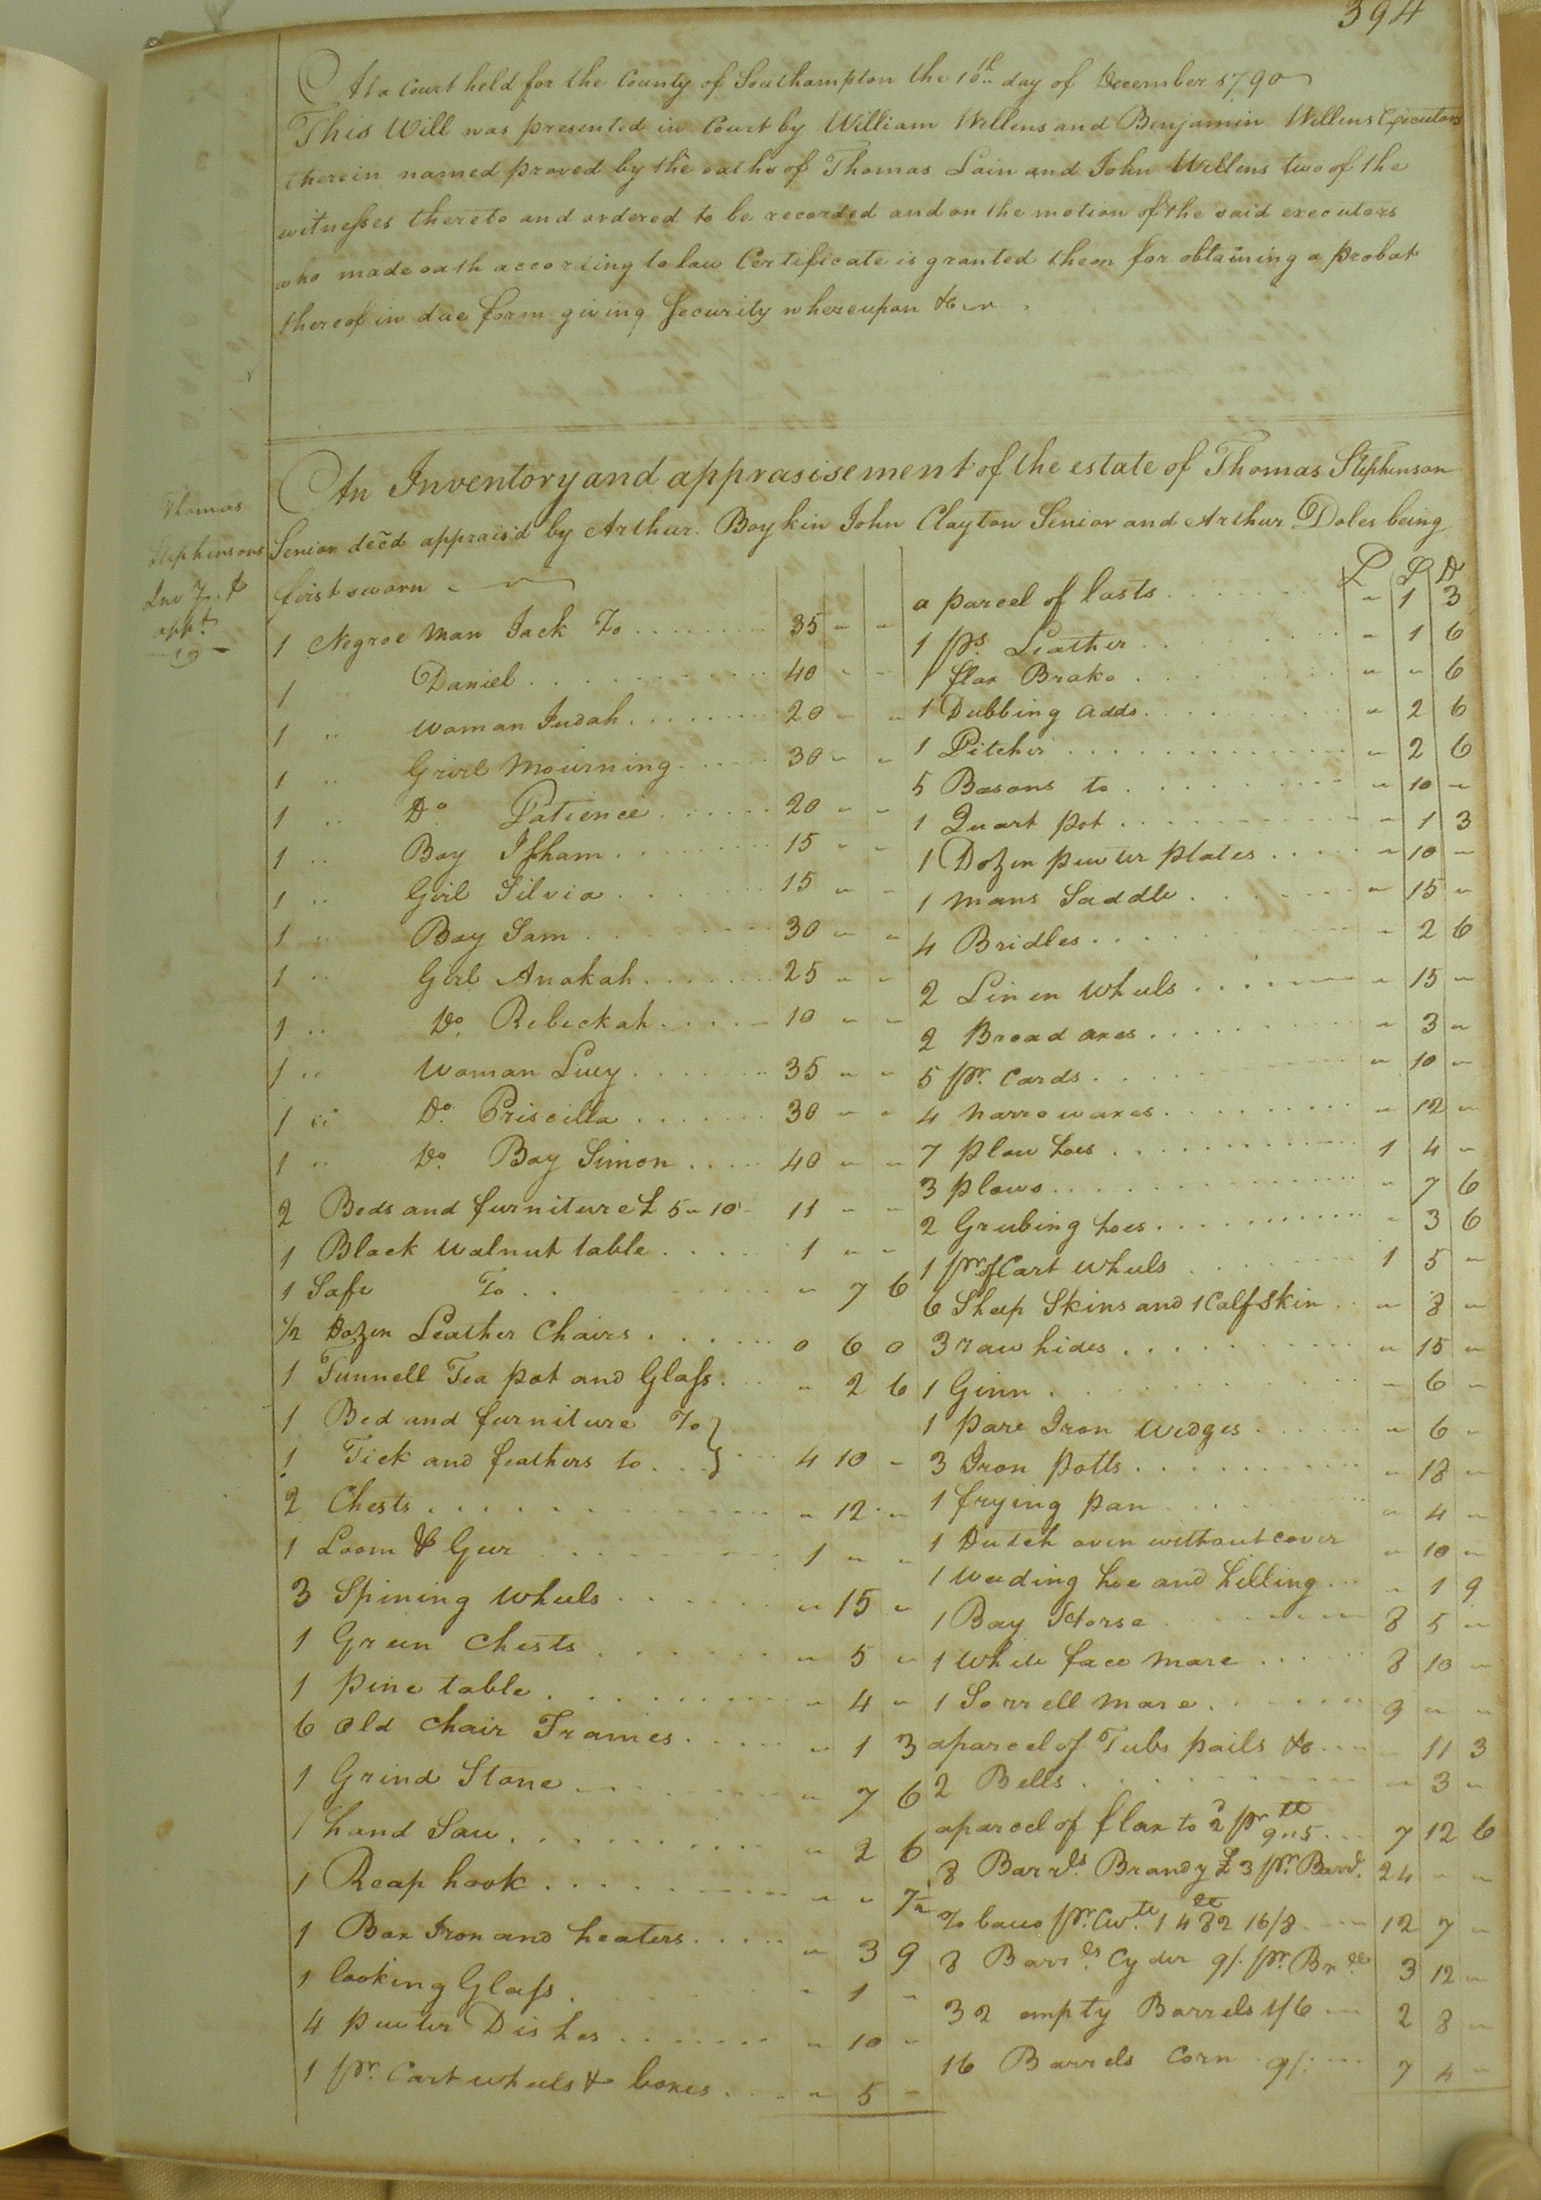 394
At a Court held for the County of Southampton the 10th day of December 1790
This Will was presented in Court by William Wellens and Benjamin Wellens Executors
therein named proved by the oaths of Thomas Lain and John Wellens two of the
witnesses thereto and ordered to be recorded and on the motion of the said executors
who made oath according to law Certificate is granted them for obtaining a probat
thereof in due form giving Security whereupon &c
An Inventory and apprasisement of the estate of Thomas Stephenson
Senior decd apprais'd by Arthur Boykin John Clayton Senior and Arthur Doles being
first sworn
Thomas
Stephensons
Invy. &
appt.
1 Negroe Man Jack To 35 " "
1 Daniel 40 " "
1 " Woman Judah 20 " "
1 " Grirl Mourning 30 " "
1 " Do Patience 20 " "
1 " Boy Isham 15 " "
1 " Girl Silvia 15 " "
1 " Boy Sam 30 " "
1 " Girl Anakah 25 " "
1 " Do. Rebeckah 10 " "
1 " Woman Lucy 35 " "
1 " Do. Priscilla 30 " "
1 " Do. Boy Simon 40 " "
2 Beds and furniture £ 5 " 10 11 " "
1 Black Walnut table 1 " "
1 Safe To " 7 6
1/2 Dozen Leather Chairs 0 6 0
1 Tunnell Tea pot and Glass " 2 6
1 Bed and furniture To }
1 Tick and feathers to } 4 10 "
2 Chests " 12 "
1 Loom & Geer 1 " "
3 Spining Wheels " 15 "
1 Green Chests " 5 "
1 pine table " 4 "
6 old Chair Frames " 1 3
1 Grind Stone " 7 6
1 hand Saw " 2 6
1 Reap hook " " 7 1/2
1 Box Iron and heaters " 3 9
1 looking Glass " 1 "
4 pewter Dishes " 10 "
1 pr. Cart wheels & boxes " 5 "
£ S D
a parcel of lasts " 1 3
1 ps. Leather " 1 6
1 flax Brake " " 6
1 Dubbing adds " 2 6
1 Pitcher " 2 6
5 Basons to " 10 "
1 Quart pot " 1 3
1 Dozen pewter plates " 10 "
1 mans Saddle " 15 "
4 Bridles " 2 6
2 Linen Wheels " 15 "
2 Broad axes " 3 "
5 pr. Cards " 10 "
4 narrow axes " 12 "
7 plow hoes 1 4 "
3 plows " 7 6
2 Grubing hoes " 3 6
1 pr. of Cart Wheels 1 5 "
6 Sheep Skins and 1 Calf Skin " 8 "
3 raw hides " 15 "
1 Ginn " 6 "
1 pare Iron Wedges " 6 "
3 Iron potts " 18 "
1 frying pan " 4 "
1 Dutch oven without cover " 10 "
1 Weeding hoe and hilling " 1 9
1 Bay Horse 8 5 "
1 White face mare 8 10 "
1 Sorrell mare 9 " "
a parcel of Tubs pails &c " 11 3
2 Bells " 3 "
a parcel of flax to 2d pr 7 12 6
8 Barrls. Brandy £3 pr. Barrl. 24 " "
pr. Cwt. 1482 16/8 12 7 "
8 Barrls. Cyder 9/. pr. Brll 3 12 "
32 empty Barrels 1/6 2 8 "
16 Barrels Corn 9/. 7 4 "